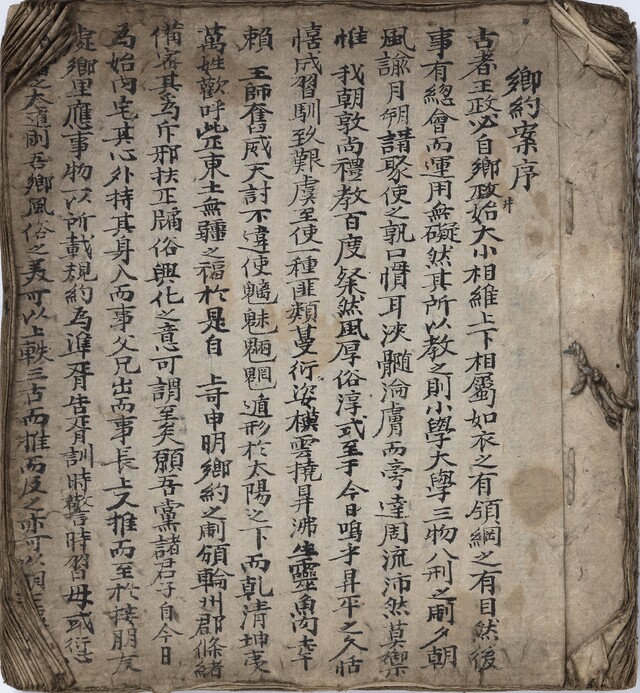 鄉約案序
古者王政必自鄉政始大小相維上下相屬如衣之有領綱之有目然後
事有總會而運用無礙然其所以教之則小學大學三物八刑之制夕朝
風諭月朔讀聚使之孰口慣耳浹髓淪膚而旁達周流沛然莫禦
惟 我朝敦尚禮教百度粲然風厚俗淳式至于今日嗚乎昇平之久恬
憘成習馴致艱虞至使一種匪類蔓衍姿橫雲撓昇沸生靈魚肉幸
賴 王師奮威天討不違使魑魅魍魎遁形於太陽之下而乾清坤夷
萬姓歡呼此正東土無疆之福於是自 上哥申明鄉約之制頒輪州郡條緒
備密其為斥邪扶正牖俗興化之意可謂至矣願吾黨諸君子自今日
為始內宅其心外持其身入而事父兄出而事長上又推而至於接朋友
處鄉里應事物以所載規約為準胥告胥訓時警時習毋或衍
之大道則吾鄉風俗之美可以上軼三古而推而及之亦可以